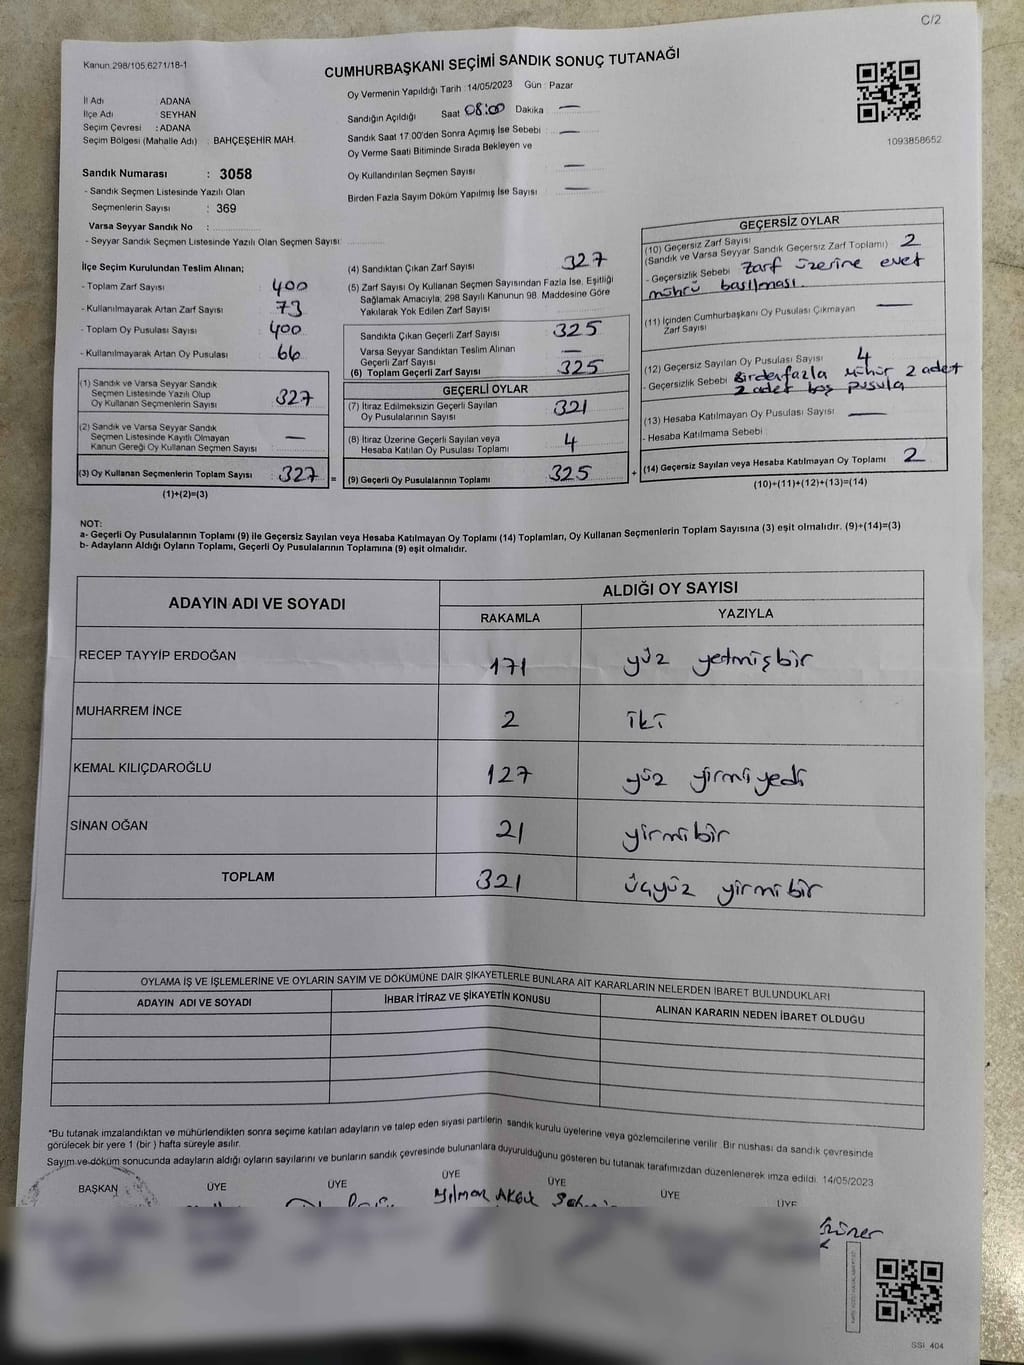 C/2
Kanun 298/105,6271/18-1
CUMHURBAŞKANI SEÇİMİ SANDIK SONUÇ TUTANAĞI
1093858652
İl Adı : ADANA
İlçe Adı : SEYHAN
Seçim Çevresi : ADANA
Seçim Bölgesi (Mahalle Adı) : BAHÇEŞEHİR MAH.
Sandık Numarası : 3058
- Sandık Seçmen Listesinde Yazılı Olan
Seçmenlerin Sayısı : 369
Varsa Seyyar Sandık No :
- Seyyar Sandık Seçmen Listesinde Yazılı Olan Seçmen Sayısı:
Oy Vermenin Yapıldığı Tarih : 14/05/2023 Gün : Pazar
Sandığın Açıldığı Saat 08:00 Dakika —
Sandık Saat 17 00'den Sonra Açımış İse Sebebi : —
Oy Verme Saati Bitiminde Sırada Bekleyen ve
Oy Kullandırılan Seçmen Sayısı —
Birden Fazla Sayım Döküm Yapılmış İse Sayısı —
İlçe Seçim Kurulundan Teslim Alınan;
- Toplam Zarf Sayısı : 400
- Kullanılmayarak Artan Zarf Sayısı : 73
- Toplam Oy Pusulası Sayısı : 400
- Kullanılmayarak Artan Oy Pusulası : 66
(1) Sandık ve Varsa Seyyar Sandık
Seçmen Listesinde Yazılı Olup
Oy Kullanan Seçmenlerin Sayısı : 327
(2) Sandık ve Varsa Seyyar Sandık
Seçmen Listesinde Kayıtlı Olmayan
Kanun Gereği Oy Kullanan Seçmen Sayısı : —
(3) Oy Kullanan Seçmenlerin Toplam Sayısı : 327 =
(1)+(2)=(3)
(4) Sandıktan Çıkan Zarf Sayısı 327
(5) Zarf Sayısı Oy Kullanan Seçmen Sayısından Fazla İse, Eşitliği
Sağlamak Amacıyla, 298 Sayılı Kanunun 98. Maddesine Göre
Yakılarak Yok Edilen Zarf Sayısı
Sandıkta Çıkan Geçerli Zarf Sayısı 325
Varsa Seyyar Sandıktan Teslim Alınan
Geçerli Zarf Sayısı —
(6) Toplam Geçerli Zarf Sayısı 325
GEÇERLİ OYLAR
(7) İtiraz Edilmeksizin Geçerli Sayılan
Oy Pusulalarının Sayısı 321
(8) İtiraz Üzerine Geçerli Sayılan veya
Hesaba Katılan Oy Pusulası Toplamı 4
(9) Geçerli Oy Pusulalarının Toplamı 325 +
GEÇERSİZ OYLAR
(10) Geçersiz Zarf Sayısı
(Sandık ve Varsa Seyyar Sandık Geçersiz Zarf Toplamı) 2
- Geçersizlik Sebebi zarf üzerine evet
mührü basılması.
(11) İçinden Cumhurbaşkanı Oy Pusulası Çıkmayan
Zarf Sayısı —
(12) Geçersiz Sayılan Oy Pusulası Sayısı 4
- Geçersizlik Sebebi Birdenfazla mühür 2 adet
2 adet boş pusula
(13) Hesaba Katılmayan Oy Pusulası Sayısı —
- Hesaba Katılmama Sebebi
(14) Geçersiz Sayılan veya Hesaba Katılmayan Oy Toplamı 2
(10)+(11)+(12)+(13)=(14)
NOT:
a- Geçerli Oy Pusulalarının Toplamı (9) ile Geçersiz Sayılan veya Hesaba Katılmayan Oy Toplamı (14) Toplamları, Oy Kullanan Seçmenlerin Toplam Sayısına (3) eşit olmalıdır. (9)+(14)=(3)
b- Adayların Aldığı Oyların Toplamı, Geçerli Oy Pusulalarının Toplamına (9) eşit olmalıdır.
ADAYIN ADI VE SOYADI ALDIĞI OY SAYISI
RAKAMLA YAZIYLA
RECEP TAYYİP ERDOĞAN 171 yüz yetmişbir
MUHARREM İNCE 2 iki
KEMAL KILIÇDAROĞLU 127 yüz yirmiyedi
SİNAN OĞAN 21 yirmibir
TOPLAM 321 üçyüz yirmibir
OYLAMA İŞ VE İŞLEMLERİNE VE OYLARIN SAYIM VE DÖKÜMÜNE DAİR ŞİKAYETLERLE BUNLARA AİT KARARLARIN NELERDEN İBARET BULUNDUKLARI
ADAYIN ADI VE SOYADI İHBAR İTİRAZ VE ŞİKAYETİN KONUSU ALINAN KARARIN NEDEN İBARET OLDUĞU
*Bu tutanak imzalandıktan ve mühürlendikten sonra seçime katılan adayların ve talep eden siyasi partilerin sandık kurulu üyelerine veya gözlemcilerine verilir. Bir nushası da sandık çevresinde
görülecek bir yere 1 (bir ) hafta süreyle asılır.
Sayım ve döküm sonucunda adayların aldığı oyların sayılarını ve bunların sandık çevresinde bulunanlara duyurulduğunu gösteren bu tutanak tarafımızdan düzenlenerek imza edildi. 14/05/2023
BAŞKAN ÜYE ÜYE ÜYE ÜYE ÜYE ÜYE
Yılmaz
SSI 404